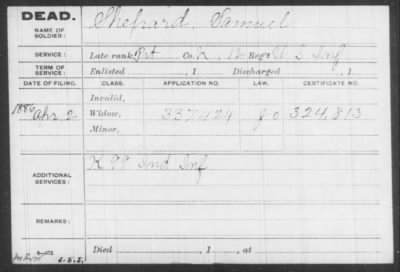 DEAD.
NAME OF SOLDIER: Shepard, Samuel
SERVICE: Late rank Pvt Co. K, 12 Reg't U S Inf
TERM OF SERVICE: Enlisted , 1 Discharged , 1
DATE OF FILING. CLASS. APPLICATION NO. LAW. CERTIFICATE NO.
Invalid,
1886 Apr 2 Widow, 337429 g-o 324,813
Minor,
ADDITIONAL SERVICES: K 99 Ind Inf
REMARKS:
Died , 1 , at
S.E.S.